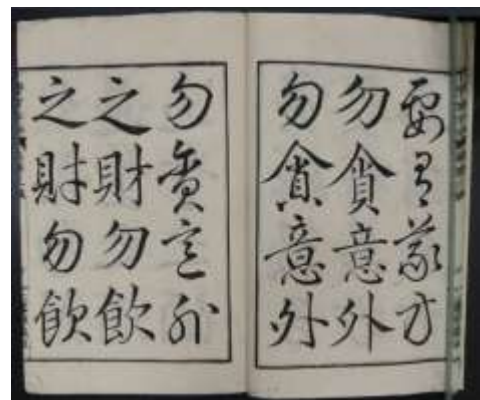 要有義方
勿貪意外
勿貪意外
勿貪意外
之財勿飲
之財勿飲